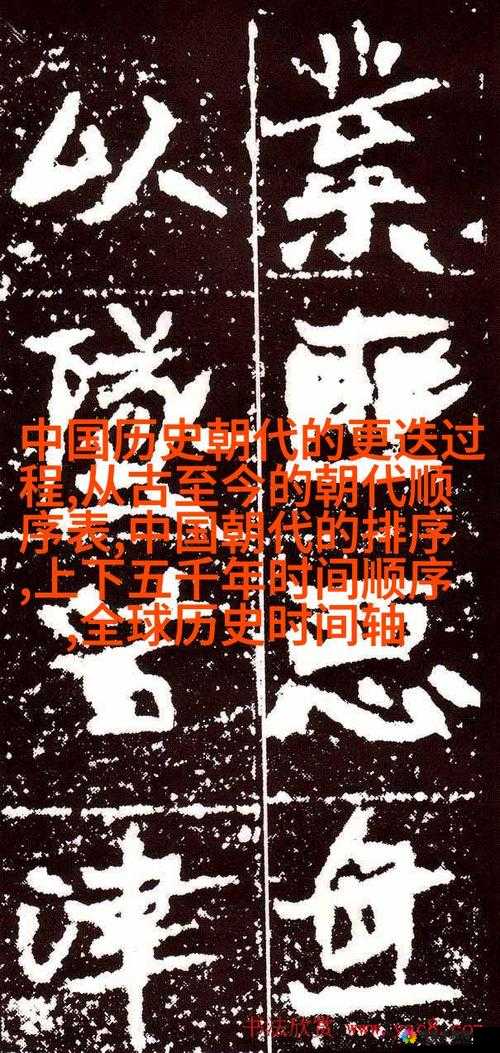 以
中国历史朝代的更迭过
程,从古至今的朝代顺
序表,中国朝代的排序
,上下五千年时间顺序
,全球历史时间轴
津
书法欣赏 www.yac8.co